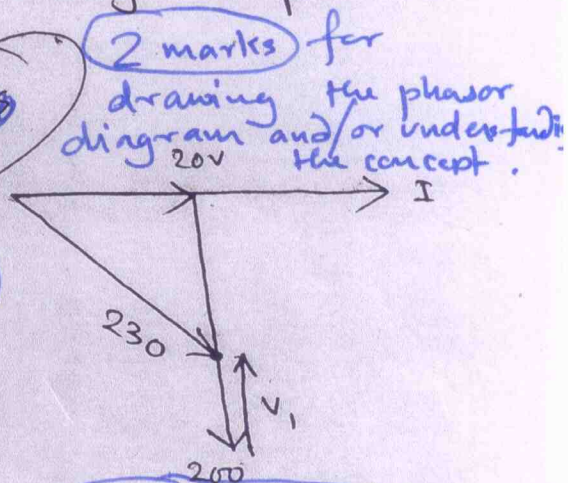 2 marks for
drawing the phasor
diagram and/or
20V the concept.
I
230
V1
200